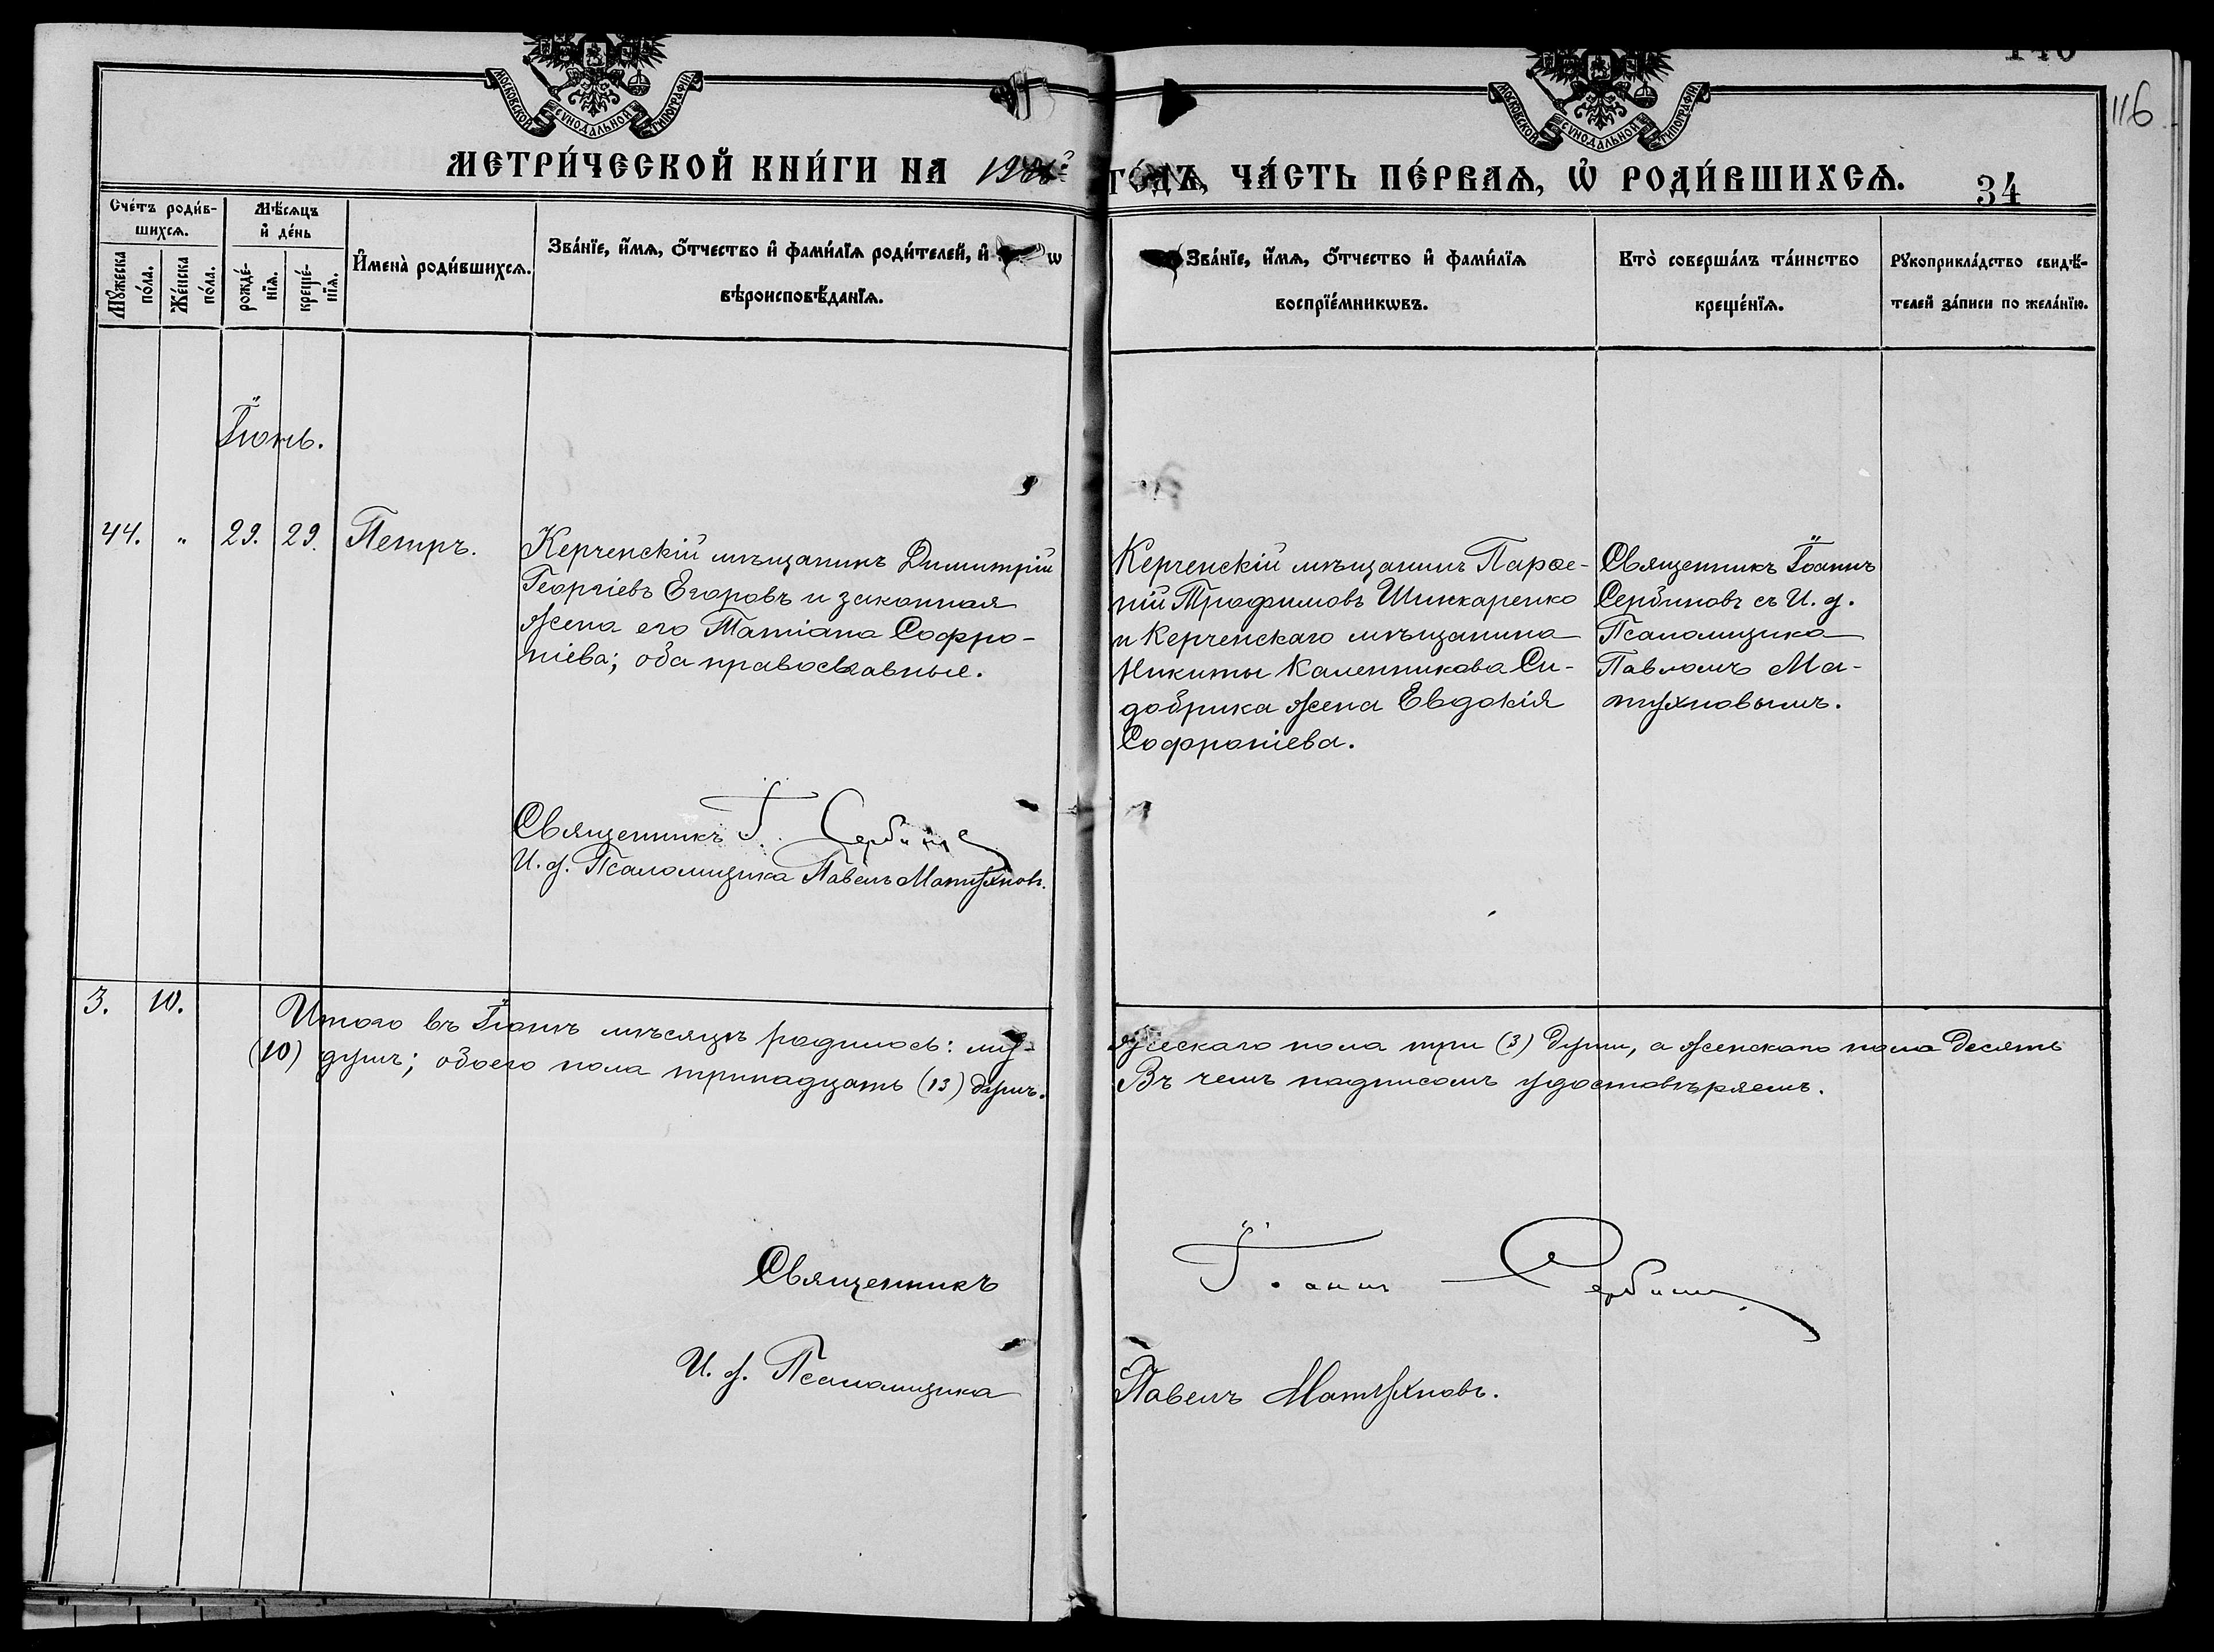 МОСКОВСКОЙ СѴНОДАЛЬНОЙ ТИПОГРАФІИ
МОСКОВСКОЙ СѴНОДАЛЬНОЙ ТИПОГРАФІИ
116
МЕТРИ́ЧЕСКОЙ КНИ́ГИ НА
ГО́ДЪ, ЧА́СТЬ ПЕ́РВАѦ, Ѡ҆ РОДИ́ВШИХСѦ.
34
Сче́тъ роди́в-
шихсѧ.
Мꙋ́жеска по́ла.
Же́нска по́ла.
Мѣ́сѧцъ
и҆ де́нь
рожде́-
нїѧ.
креще́-
нїѧ.
И҆мена̀ роди́вшихсѧ.
Зва́нїе, и҆́мѧ, ѻ҆́тчество и҆ фамѝлїѧ роди́телей, и҆
вѣроисповѣ́данїѧ.
Зва́нїе, и҆́мѧ, ѻ҆́тчество и҆ фамѝлїѧ
воспрїе́мникѡвъ.
Кто̀ соверша́лъ та́инство
креще́нїѧ.
Рꙋкоприкла́дство свидѣ́-
телей за́писи по жела́нїю.
Іюнь.
44. " 29. 29. Петръ.
Керченскій мѣщанинъ Димитрій
Георгіевъ Егоровъ и законная
жена его Татіана Софро-
ніева; оба православные.
Керченскій мѣщанинъ Парѳе-
ній Трофимовъ Шинкаренко
и Керченскаго мѣщанина
Никиты Каленникова Си-
добрика жена Евдокія
Софроніева.
Священникъ Іоаннъ
Сербиновъ съ И. д.
Псаломщика
Павломъ Ма-
тухновымъ.
Священникъ І. Сербинов
И. д. Псаломщика Павелъ Матухновъ.
3. 10. Итого въ Іюнѣ мѣсяцѣ родилось: му-
жескаго пола три (3) души, а женскаго пола десять
(10) душъ; обоего пола тринадцать (13) душъ.
Въ чемъ подписомъ удостовѣряемъ.
Священникъ Іоаннъ Сербинов
И. д. Псаломщика Павелъ Матухновъ.